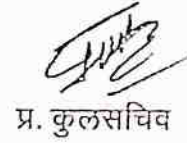 प्र. कुलसचिव